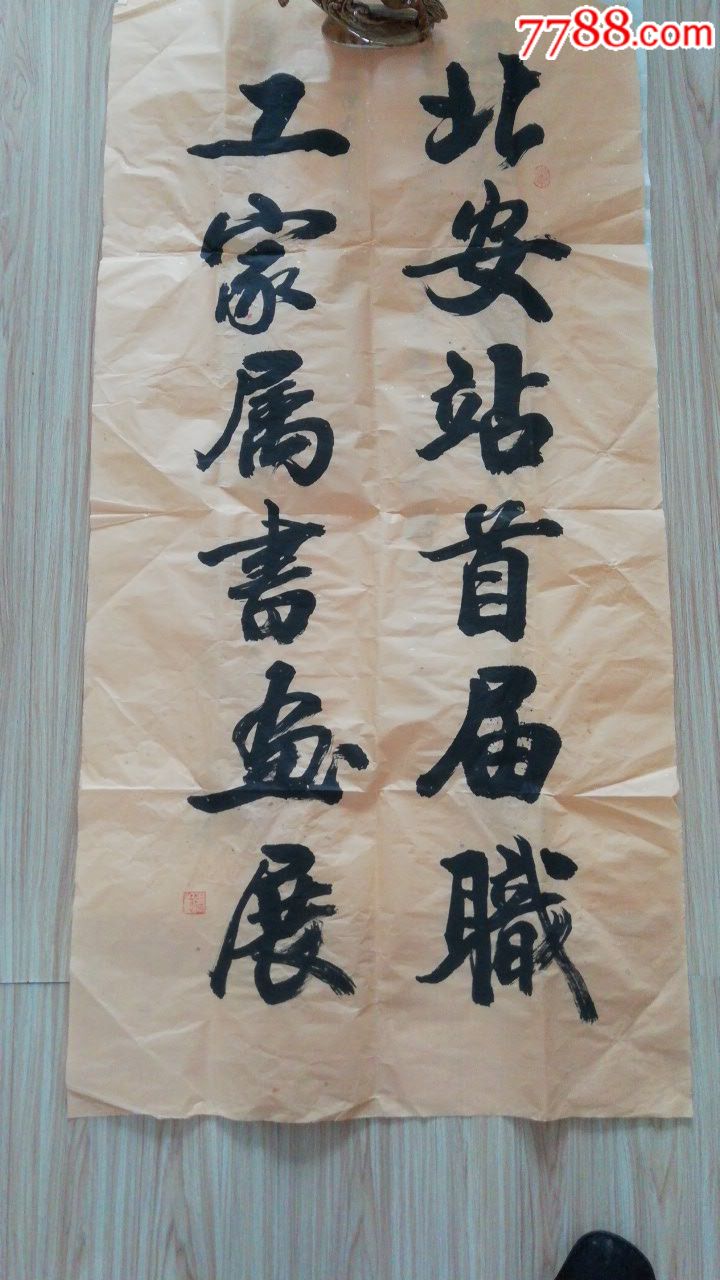 7788.com
北安站首届職
工家属書画展